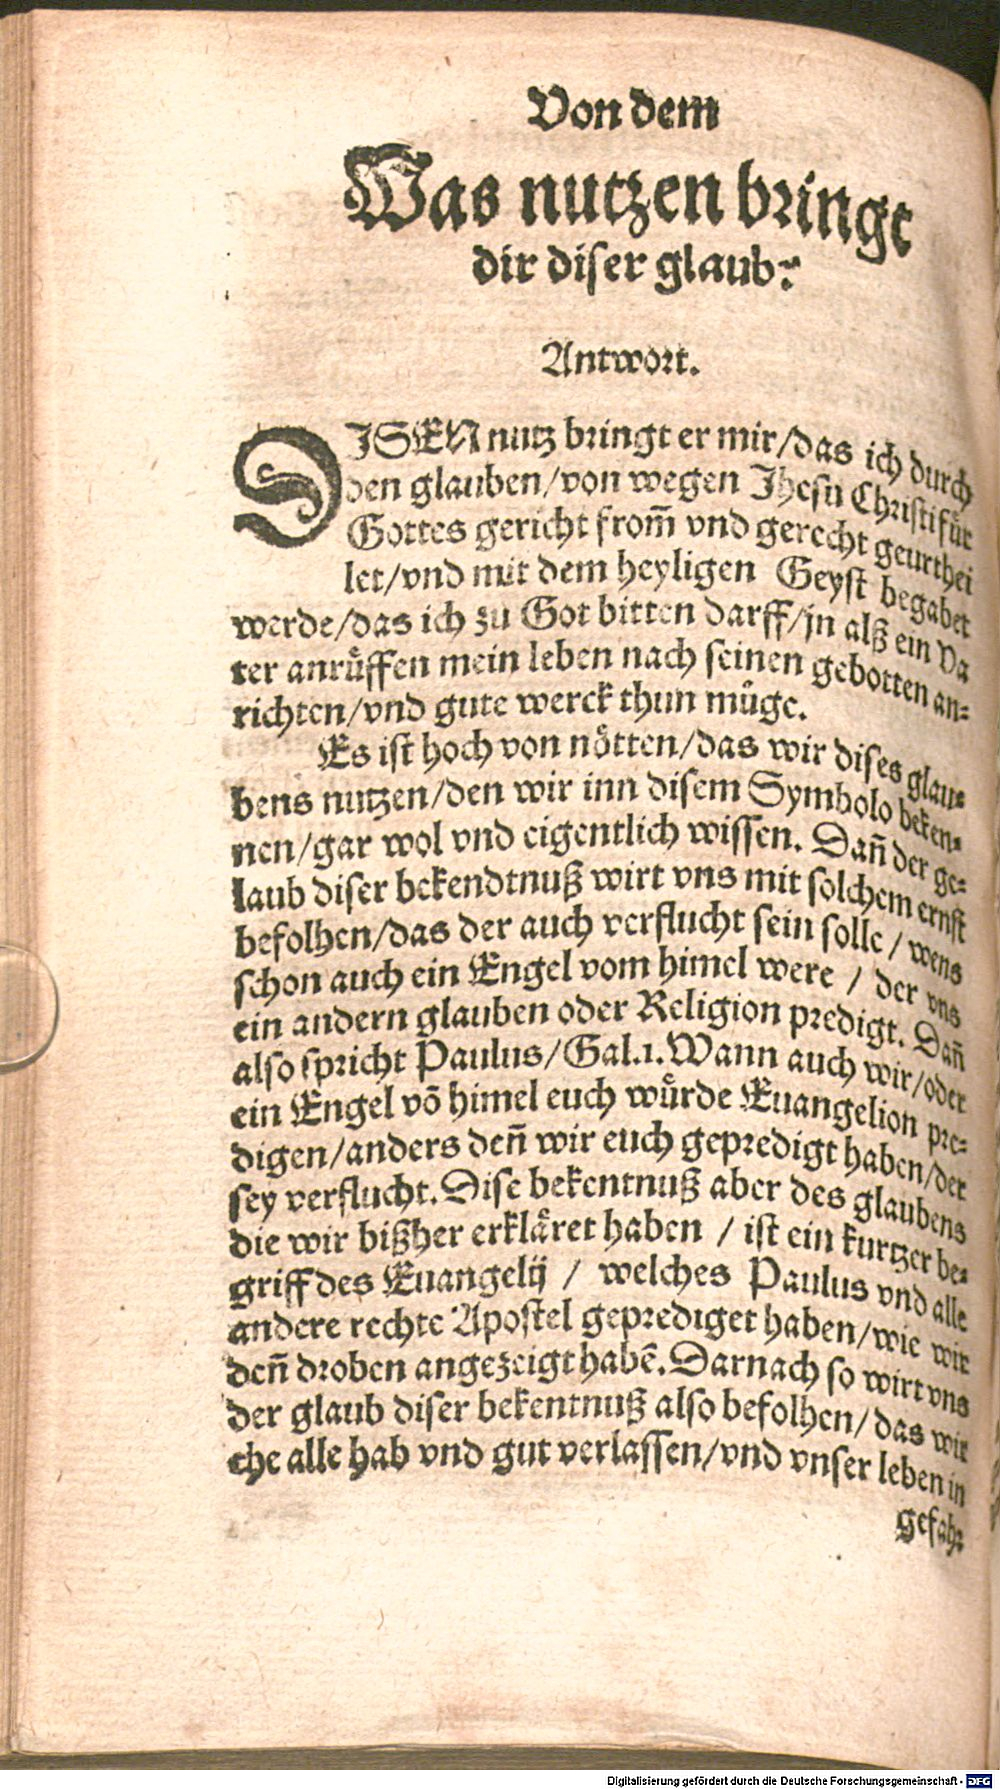 Von dem
Was nutzen bringt
dir diser glaub?
Antwort.
DISEN nutz bringt er mir/das ich durch
den glauben/von wegen Jhesu Christi für
Gottes gericht from̃ vnd gerecht geurthei
let/vnd mit dem heyligen Geyst begabet
werde/das ich zu Got bitten darff/jn alß ein Va
ter anrüffen mein leben nach seinen gebotten an-
richten/vnd gute werck thun müge.
Es ist hoch von nötten/das wir dises glau-
bens nutzen/den wir inn disem Symbolo beken-
nen/gar wol vnd eigentlich wissen. Dañ der ge-
laub diser bekendtnuß wirt vns mit solchem ernst
befolhen/das der auch verflucht sein solle/wens
schon auch ein Engel vom himel were / der vns
ein andern glauben oder Religion predigt. Dañ
also spricht Paulus/Gal.1. Wann auch wir/oder
ein Engel võ himel euch würde Euangelion pre-
digen/anders deñ wir euch geprediget haben/der
sey verflucht. Dise bekentnuß aber des glaubens
die wir bißher erkläret haben / ist ein kurtzer be-
griff des Euangelij / welches Paulus vnd alle
andere rechte Apostel geprediget haben/wie wir
deñ droben angezeigt habẽ. Darnach so wirt vns
der glaub diser bekentnuß also befolhen/das wir
ehe alle hab vnd gut verlassen/vnd vnser leben in
gefahr
Digitalisierung gefördert durch die Deutsche Forschungsgemeinschaft - DFG